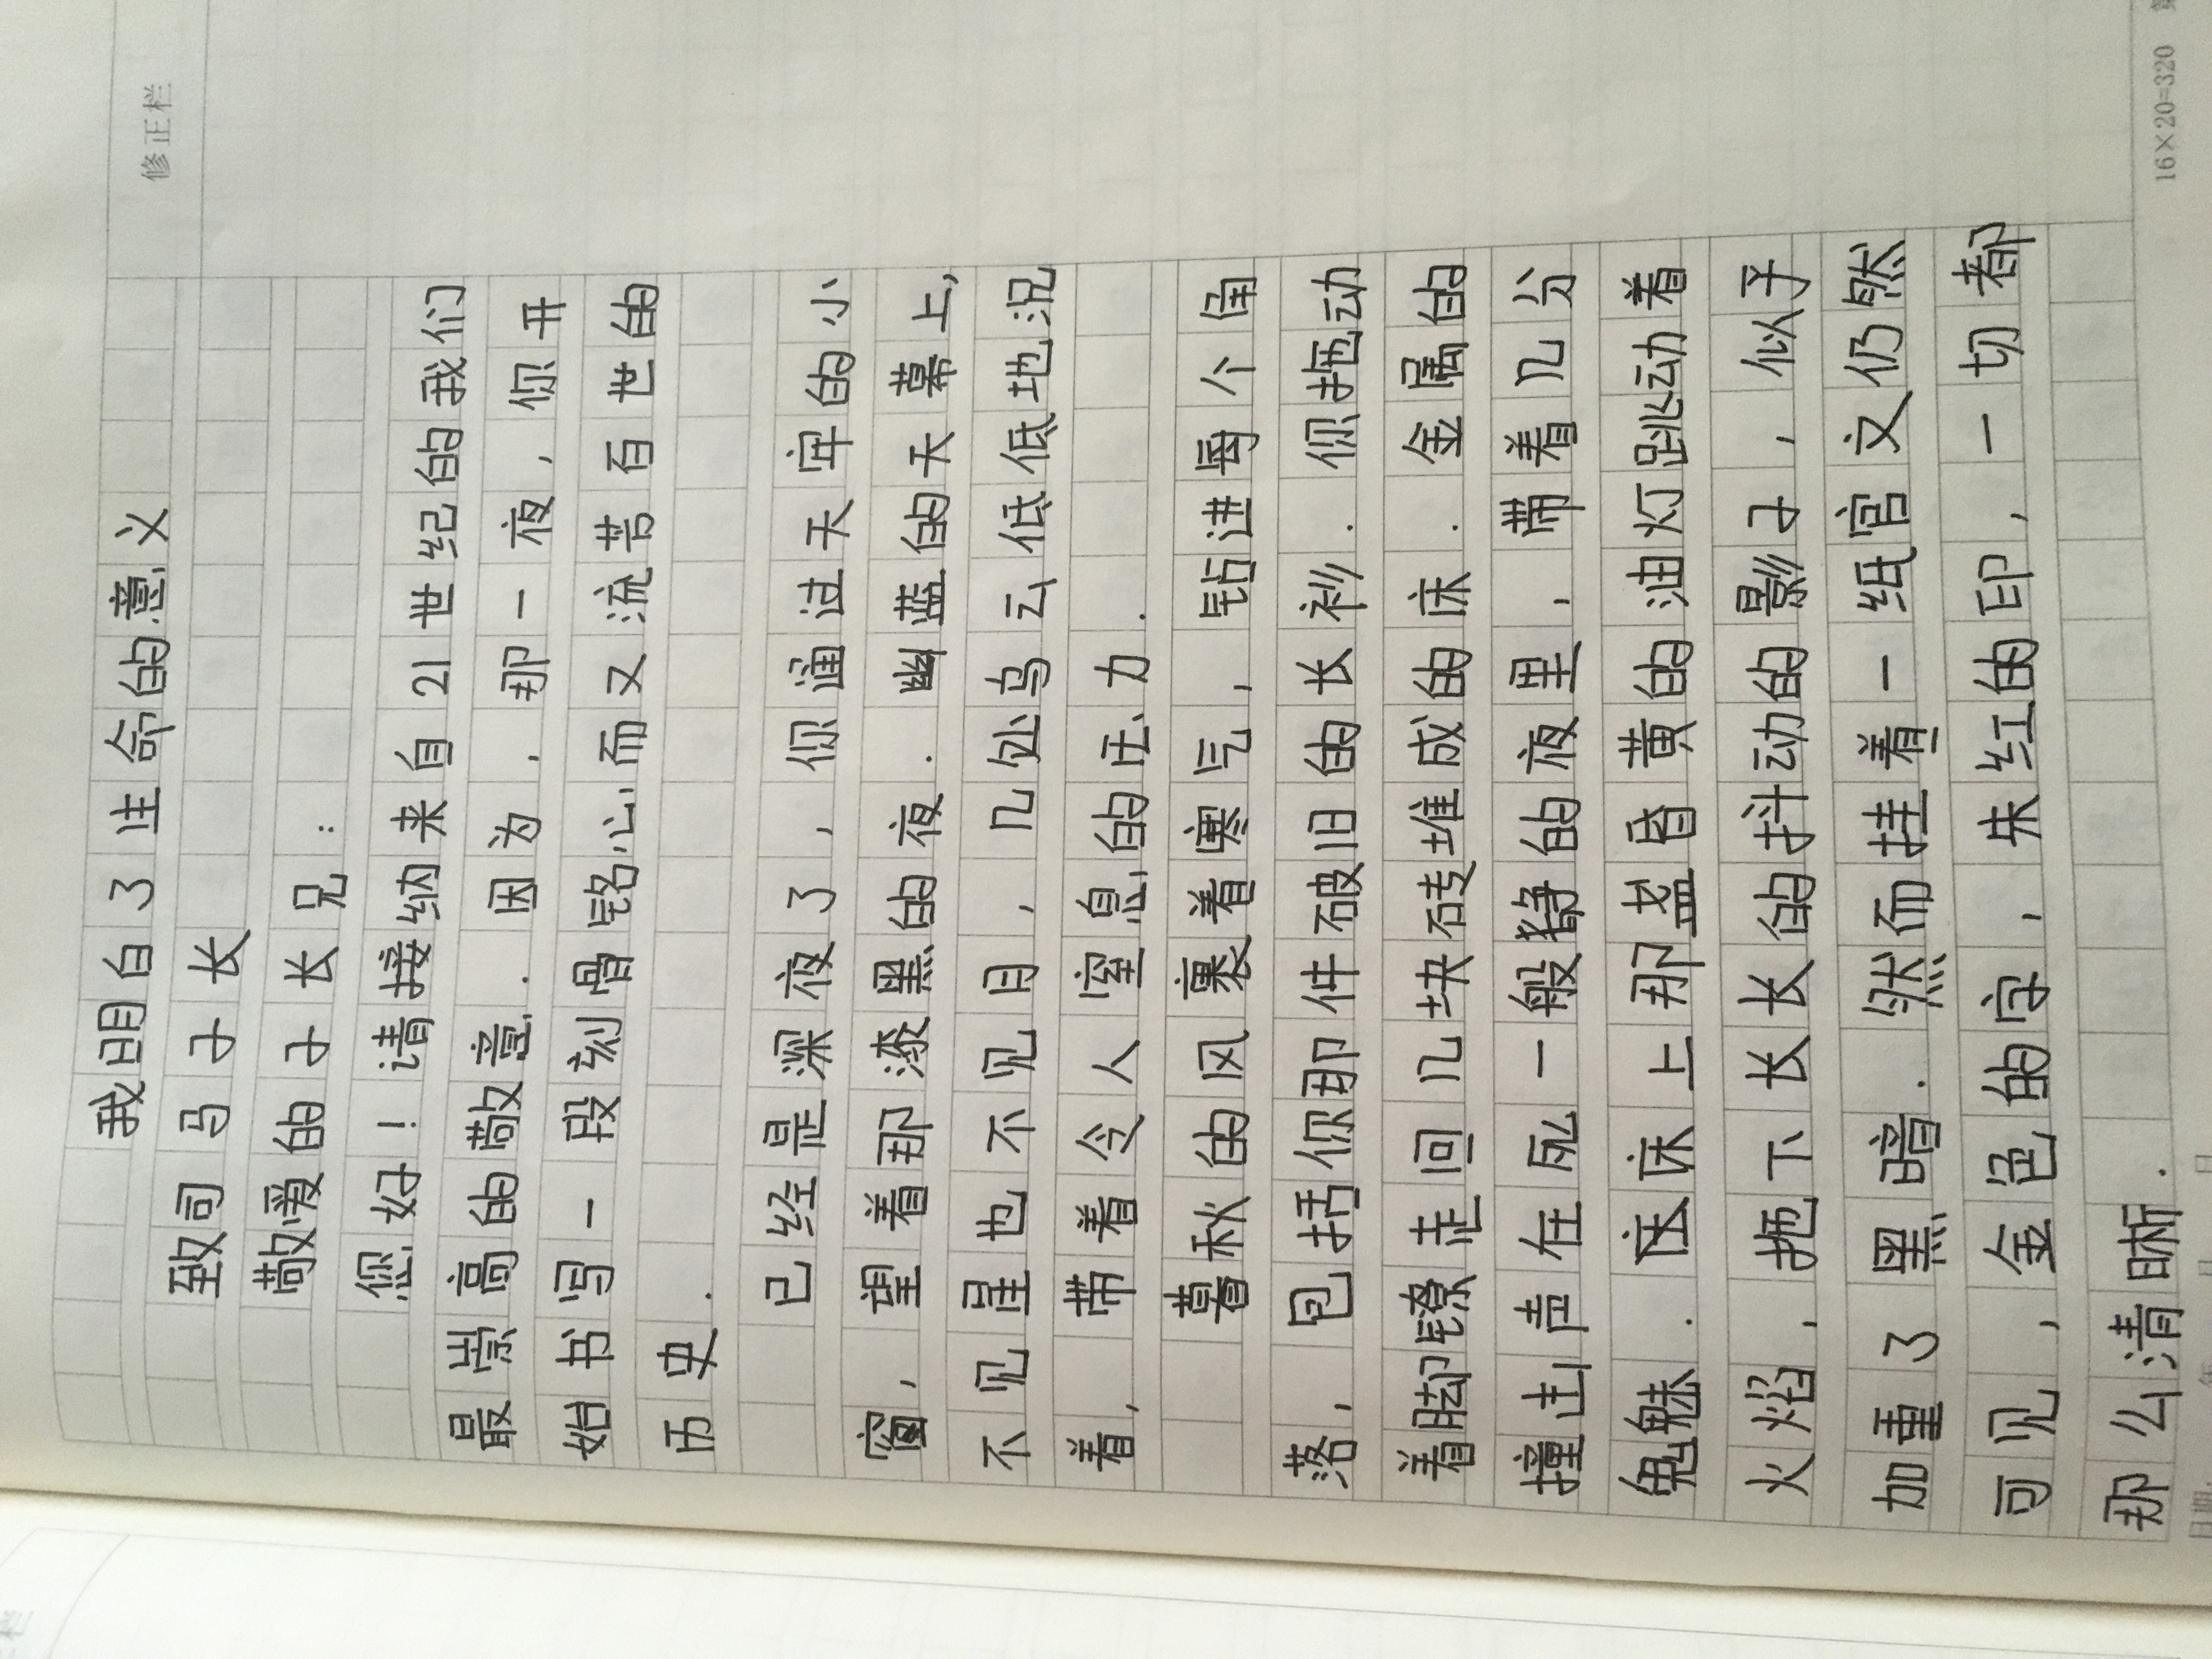 修正栏
我明白了生命的意义
致司马子长
敬爱的子长兄：
您好！请接纳来自21世纪的我们
最崇高的敬意.因为,那一夜,你开
始书写一段刻骨铭心而又流苦百世的
历史.
已经是深夜了,你通过天牢的小
窗,望着那漆黑的夜.幽蓝的天幕上,
不见星也不见月,几处乌云低低地沉
着,带着令人窒息的压力.
暮秋的风裹着寒气,钻进每个角
落,包括你那件破旧的长衫.你拖动
着脚镣走回几块砖堆成的床.金属的
撞击声在死一般静的夜里,带着几分
鬼魅.床上那盏昏黄的油灯跳动着
火焰,拖下长长的抖动的影子,似乎
加重了黑暗.然而挂着一纸官文仍然
可见,金色的字,朱红的印,一切都
那么清晰.
16×20=320